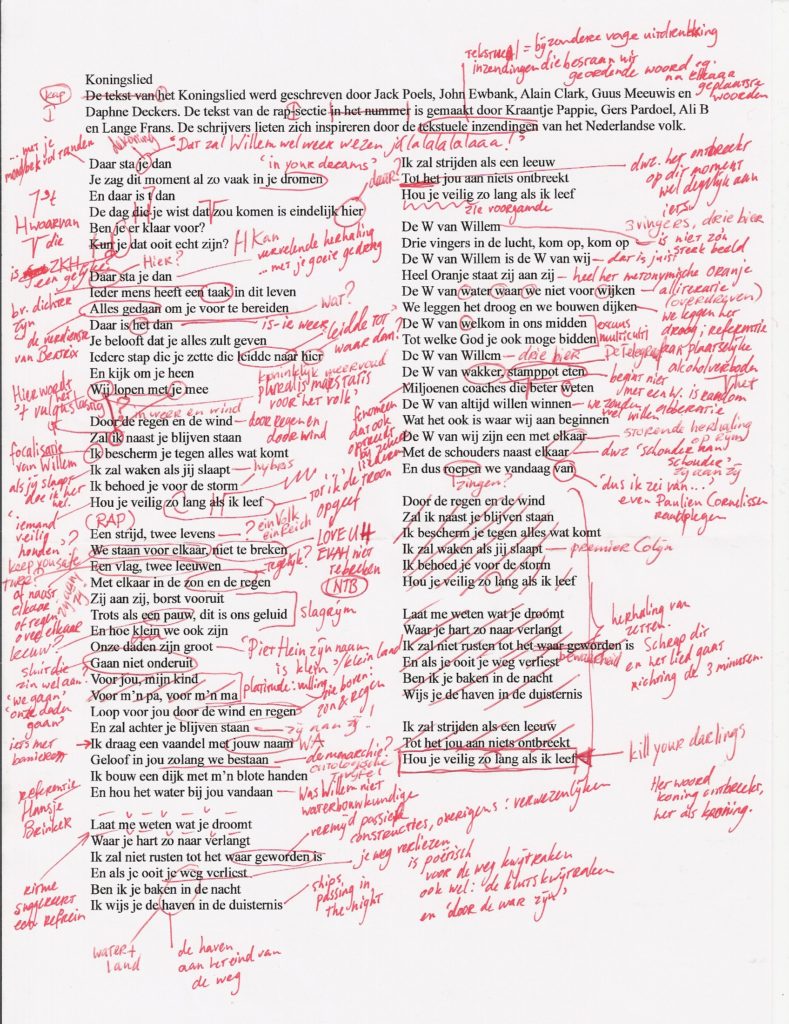 Koningslied
De tekst van het Koningslied werd geschreven door Jack Poels, John Ewbank, Alain Clark, Guus Meeuwis en
Daphne Deckers. De tekst van de rap-sectie in het nummer is gemaakt door Kraantje Pappie, Gers Pardoel, Ali B
en Lange Frans. De schrijvers lieten zich inspireren door de tekstuele inzendingen van het Nederlandse volk.
tekstueel = bijzonder vage uitdrukking
inzendingen die bestaan uit
geordende woord
na elkaar
geplaatste
woorden
Dat zal Willem wel weer wezen jalalalalalaaa!
...met je
mond vol tanden
Daar sta je dan
'in your dreams'
Je zag dit moment al zo vaak in je dromen
En daar is t dan
De dag die je wist dat zou komen is eindelijk hier
daar?
Ben je er klaar voor?
Kun je dat ooit echt zijn?
H Kan
vervelende herhaling
... met je goeie gedrag
Hier?
H waarvan
T die
Daar sta je dan
Ieder mens heeft een taak in dit leven
Alles gedaan om je voor te bereiden
wat?
Daar is het dan
is-ie weer
Je belooft dat je alles zult geven
Iedere stap die je zette die leidde naar hier
leidde tot
waar dan?
En kijk om je heen
Wij lopen met je mee
koninklijk meervoud
pluralis majestatis
voor 'het volk'
de verdienste
van Beatrix
Hier wordt
het
in weer en wind
Door de regen en de wind
door regen en
door wind
Zal ik naast je blijven staan
Ik bescherm je tegen alles wat komt
Ik zal waken als jij slaapt
hybris
Ik behoed je voor de storm
Hou je veilig zo lang als ik leef
tot ik de troon
opgeef
focalisatie
van Willem
als jij slaapt
doe ik het
wel.
fenomeen
dat ook
optreedt
bij zeker
liederen
(RAP)
'iemand
veilig
houden'
keep you safe
Een strijd, twee levens
? ein Volk
ein Reich
We staan voor elkaar, niet te breken
LOVE U 4
EVAH niet
te breken
Een vlag, twee leeuwen
Met elkaar in de zon en de regen
NTB
Zij aan zij, borst vooruit
Trots als een pauw, dit is ons geluid
slagrijm
En hoe klein we ook zijn
Onze daden zijn groot
'Piet Hein zijn naam
is klein' / klein land
Gaan niet onderuit
Voor jou, mijn kind
Voor m'n pa, voor m'n ma
platitude: vulling
Loop voor jou door de wind en regen
zie boven:
zon & regen
En zal achter je blijven staan
Ik draag een vaandel met jouw naam
WA
Geloof in jou zolang we bestaan
de monarchie?
Ik bouw een dijk met m'n blote handen
En hou het water bij jou vandaan
Was Willem niet
waterbouwkundige
twee?
of naast
elkaar
of regen
over elkaar
leeuw?
sluit die
zin wel aan?
'we gaan'
'onze daden
gaan'
iets met
banieren
referentie
Hansje
Brinker
Laat me weten wat je droomt
Waar je hart zo naar verlangt
Ik zal niet rusten tot het waar geworden is
En als je ooit je weg verliest
Ben ik je baken in de nacht
Ik wijs je de haven in de duisternis
vermijd passieve
constructies, overigens: verwezenlijken
je weg verliezen
is poëtisch
voor de weg kwijtraken
ook wel: de kluts kwijtraken
en 'door de war zijn'
ships,
passing in
the night
ritme
suggereert
een refrein
water +
land
de haven
aan het eind van
de weg
Ik zal strijden als een leeuw
Tot het jou aan niets ontbreekt
Hou je veilig zo lang als ik leef
zie voorgaande
dwz. het ontbreekt
op dit moment
wel degelijk aan
iets
De W van Willem
3 vingers, drie bier
Drie vingers in de lucht, kom op, kom op
is niet zo'n
sterk beeld
De W van Willem is de W van wij
dat is juist
Heel Oranje staat zij aan zij
heel het metonymische oranje
De W van water waar we niet voor wijken
alliteratie
(overdreven)
We leggen het droog en we bouwen dijken
we leggen het
droog: referentie
aan plaatselijke
alcoholverboden
De W van welkom in ons midden
excuus
multiculti
Tot welke God je ook moge bidden
De W van Willem
drie bier
De Telegraaf
De W van wakker, stamppot eten
begint niet
met een W. is random
Miljoenen coaches die beter weten
De W van altijd willen winnen
we zouden
veel willen
alliteratie
Wat het ook is waar wij aan beginnen
De W van wij zijn een met elkaar
storende herhaling
op rijm
Met de schouders naast elkaar
dwz 'schouder aan
schouder'
zij aan zij
En dus roepen we vandaag van
zingen?
'dus ik zei van...'
even Paulien Cornelissen
raadplegen
Door de regen en de wind
Zal ik naast je blijven staan
Ik bescherm je tegen alles wat komt
Ik zal waken als jij slaapt
premier Colijn
Ik behoed je voor de storm
Hou je veilig zo lang als ik leef
Laat me weten wat je droomt
Waar je hart zo naar verlangt
Ik zal niet rusten tot het waar geworden is
bewaarheid
En als je ooit je weg verliest
Ben ik je baken in de nacht
Wijs je de haven in de duisternis
herhaling van
zetten.
Schrap dit
en het lied gaat
richting de 3 minuten.
Ik zal strijden als een leeuw
Tot het jou aan niets ontbreekt
Hou je veilig zo lang als ik leef
kill your darlings
Het woord
koning ontbreekt,
net als kroning.